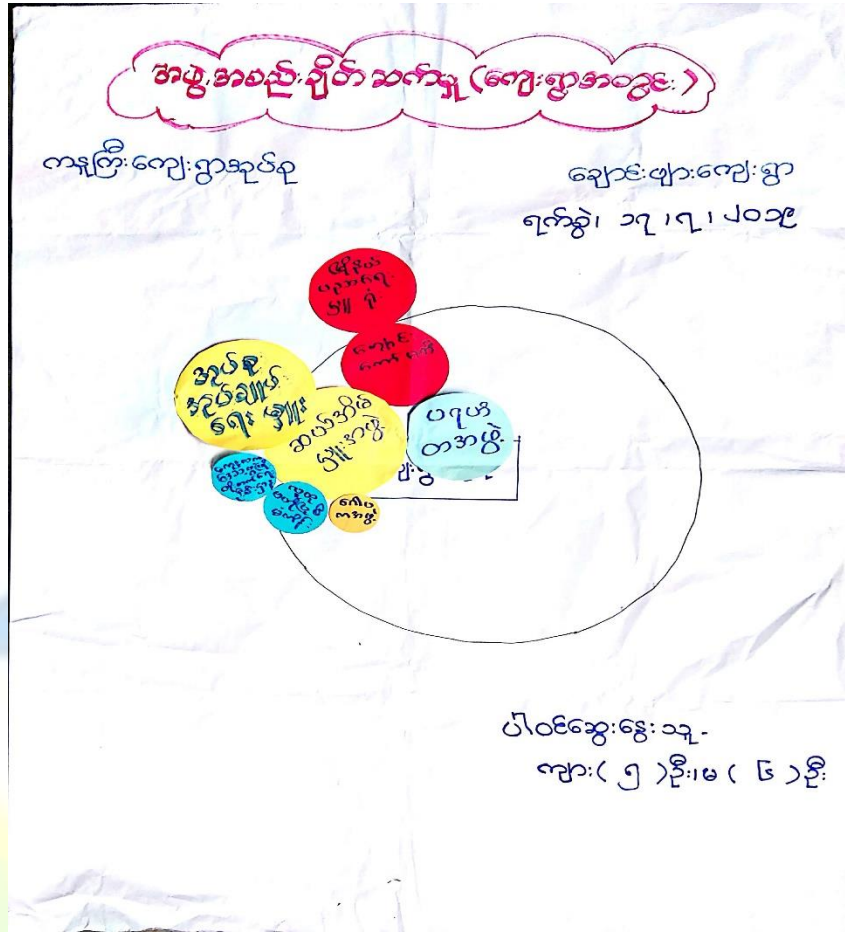 အဖွဲ့အစည်းချိတ်ဆက်မှု (ကျေးရွာအတွင်း)
ကနူကြီးကျေးရွာအုပ်စု
ချောင်းဖျားကျေးရွာ
ရက်စွဲ၊ ၁၇၊၇၊၂၀၁၉
မြို့နယ်
ပညာရေး
မှူး ရုံး
ကျောင်း
ကော်မတီ
အုပ်စု
အုပ်ချုပ်
ရေး မှူး
ဆယ်အိမ်
မှူးအဖွဲ့
ပရဟိ
တအဖွဲ့
ဂေါပ
ကအဖွဲ့
ပါဝင်ဆွေးနွေးသူ-
ကျား( ၅ )ဦး၊မ ( ၆ )ဦး